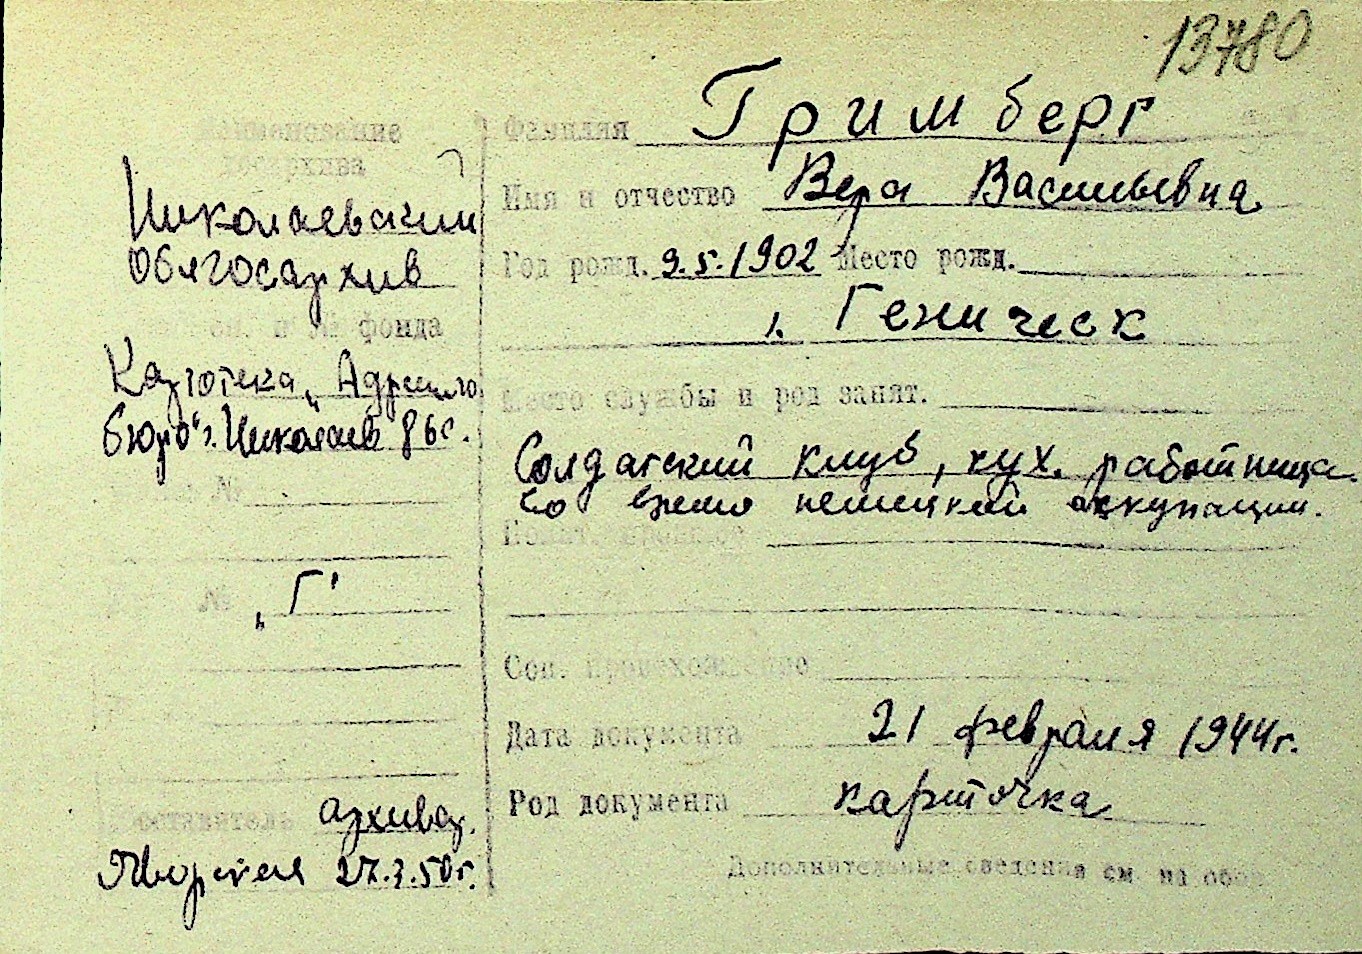 13780
Наименование
госархива
Николаевский
Облгосархив
и № фонда
Картотека „Адресного
бюро" г. Николаев 86с.
№
№ „Г"
Составитель архивар.
27.3.50г.
Фамилия Гримберг
Имя и отчество Вера Васильевна
Год рожд. 9.5.1902 Место рожд.
г. Геническ
Место службы и род занят.
Солдатский клуб, кух. работница
во время немецкой оккупации.
Соц. происхождение
Дата документа 21 февраля 1944г.
Род документа карточка
Дополнительные сведения см. на обор.